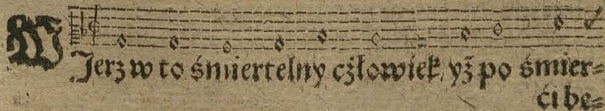 WJerz w to śmiertelny cżłowiek, yż po śmier⸗
ći be⸗